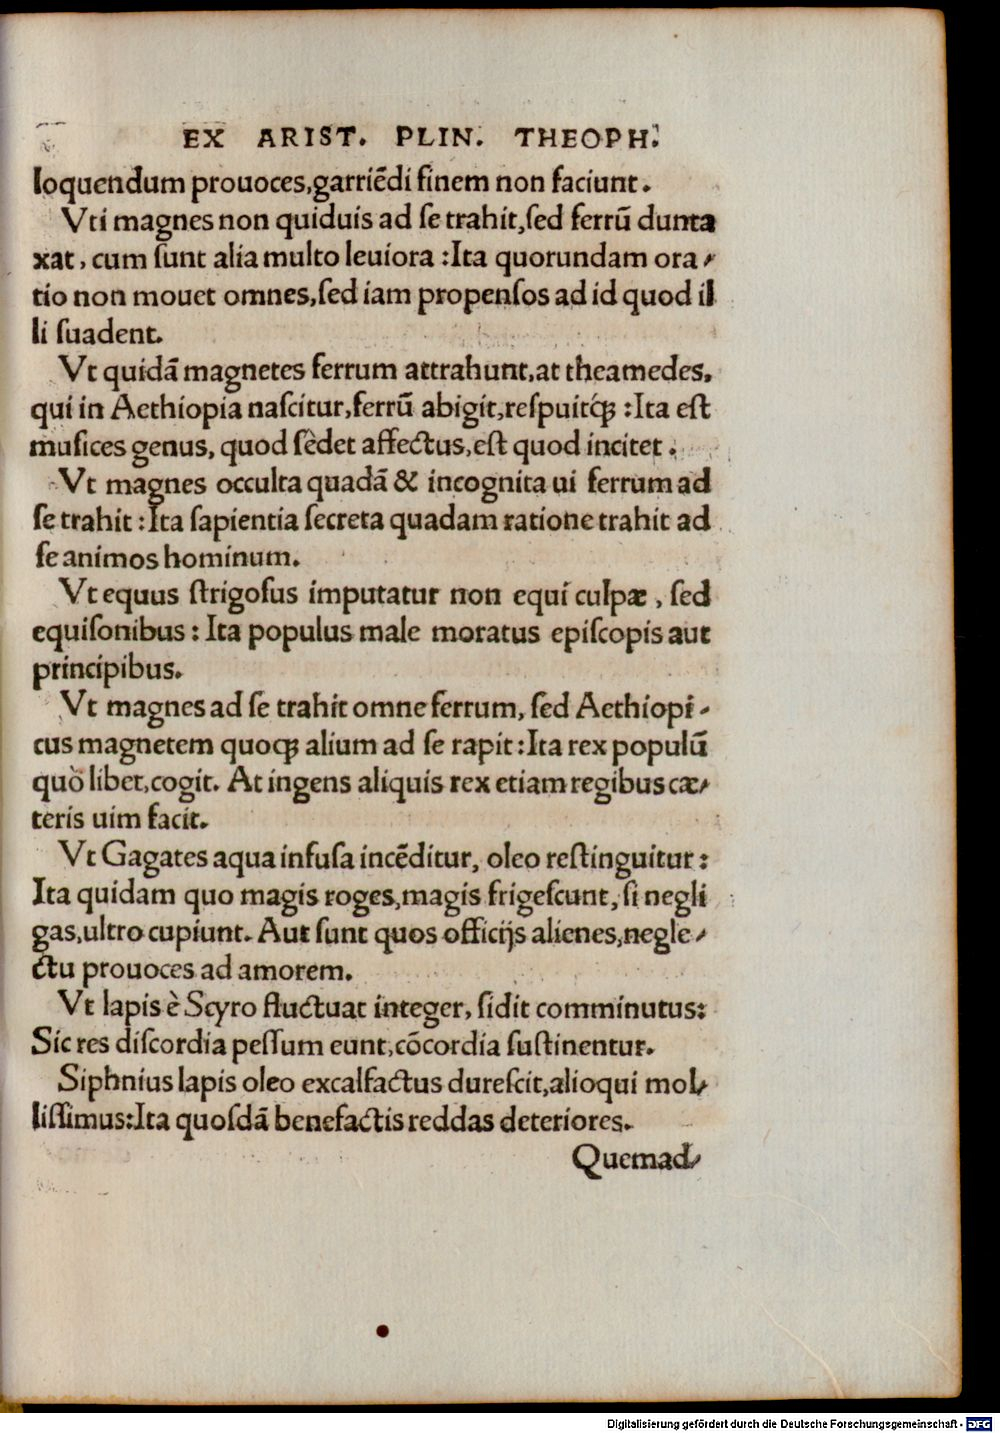 EX ARIST. PLIN. THEOPH.
loquendum prouoces,garriēdi finem non faciunt.
Vti magnes non quiduis ad ſe trahit,ſed ferrū dunta
xat, cum ſunt alia multo leuiora :Ita quorundam ora-
tio non mouet omnes,ſed iam propenſos ad id quod il
li ſuadent.
Vt quidā magnetes ferrum attrahunt,at theamedes,
qui in Aethiopia naſcitur,ferrū abigit,reſpuitq́ꝫ :Ita eſt
muſices genus, quod ſèdet affectus,eſt quod incitet.
Vt magnes occulta quadā & incognita ui ferrum ad
ſe trahit :Ita ſapientia ſecreta quadam ratione trahit ad
ſe animos hominum.
Vt equus ſtrigoſus imputatur non equi culpæ, ſed
equiſonibus : Ita populus male moratus epiſcopis aut
principibus.
Vt magnes ad ſe trahit omne ferrum, ſed Aethiopi-
cus magnetem quoqꝫ alium ad ſe rapit :Ita rex populū
quò libet,cogit. At ingens aliquis rex etiam regibus cæ-
teris uim facit.
Vt Gagates aqua infuſa incēditur, oleo reſtinguitur :
Ita quidam quo magis roges,magis frigeſcunt, ſi negli
gas,ultro cupiunt. Aut ſunt quos officijs alienes,negle-
ctu prouoces ad amorem.
Vt lapis è Scyro fluctuat integer, ſidit comminutus:
Sic res diſcordia peſſum eunt,cōcordia ſuſtinentur.
Siphnius lapis oleo excalfactus dureſcit,alioqui mol-
liſſimus:Ita quoſdā benefactis reddas deteriores.
Quemad-
Digitalisierung gefördert durch die Deutsche Forschungsgemeinschaft - DFG